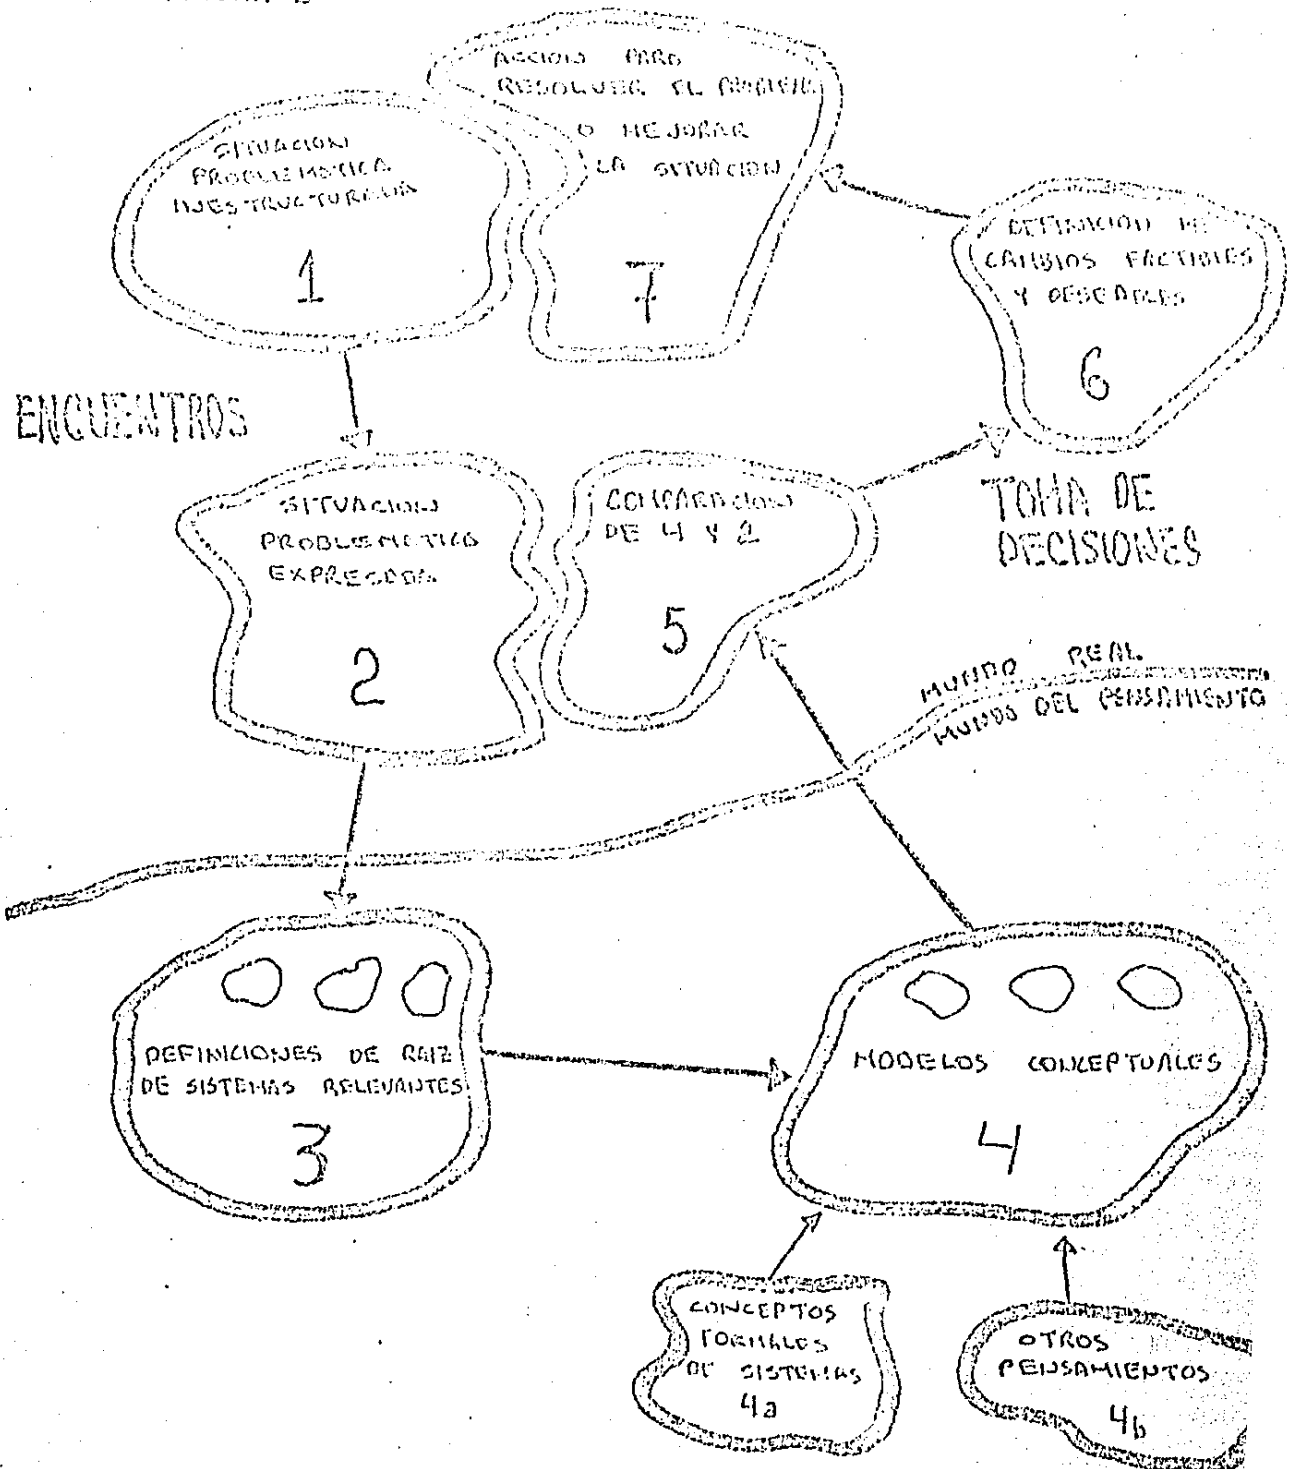 ACCION PARA
RESOLVER EL PROBLEMA
O MEJORAR
LA SITUACION
7
SITUACION
PROBLEMATICA
INESTRUCTURADA
1
DEFINICION DE
CAMBIOS FACTIBLES
Y DESEABLES
6
ENCUENTROS
SITUACION
PROBLEMATICA
EXPRESADA
2
COMPARACION
DE 4 Y 2
5
TOMA DE
DECISIONES
MUNDO REAL
MUNDO DEL PENSAMIENTO
DEFINICIONES DE RAIZ
DE SISTEMAS RELEVANTES
3
MODELOS CONCEPTUALES
4
CONCEPTOS
FORMALES
DE SISTEMAS
4a
OTROS
PENSAMIENTOS
4b